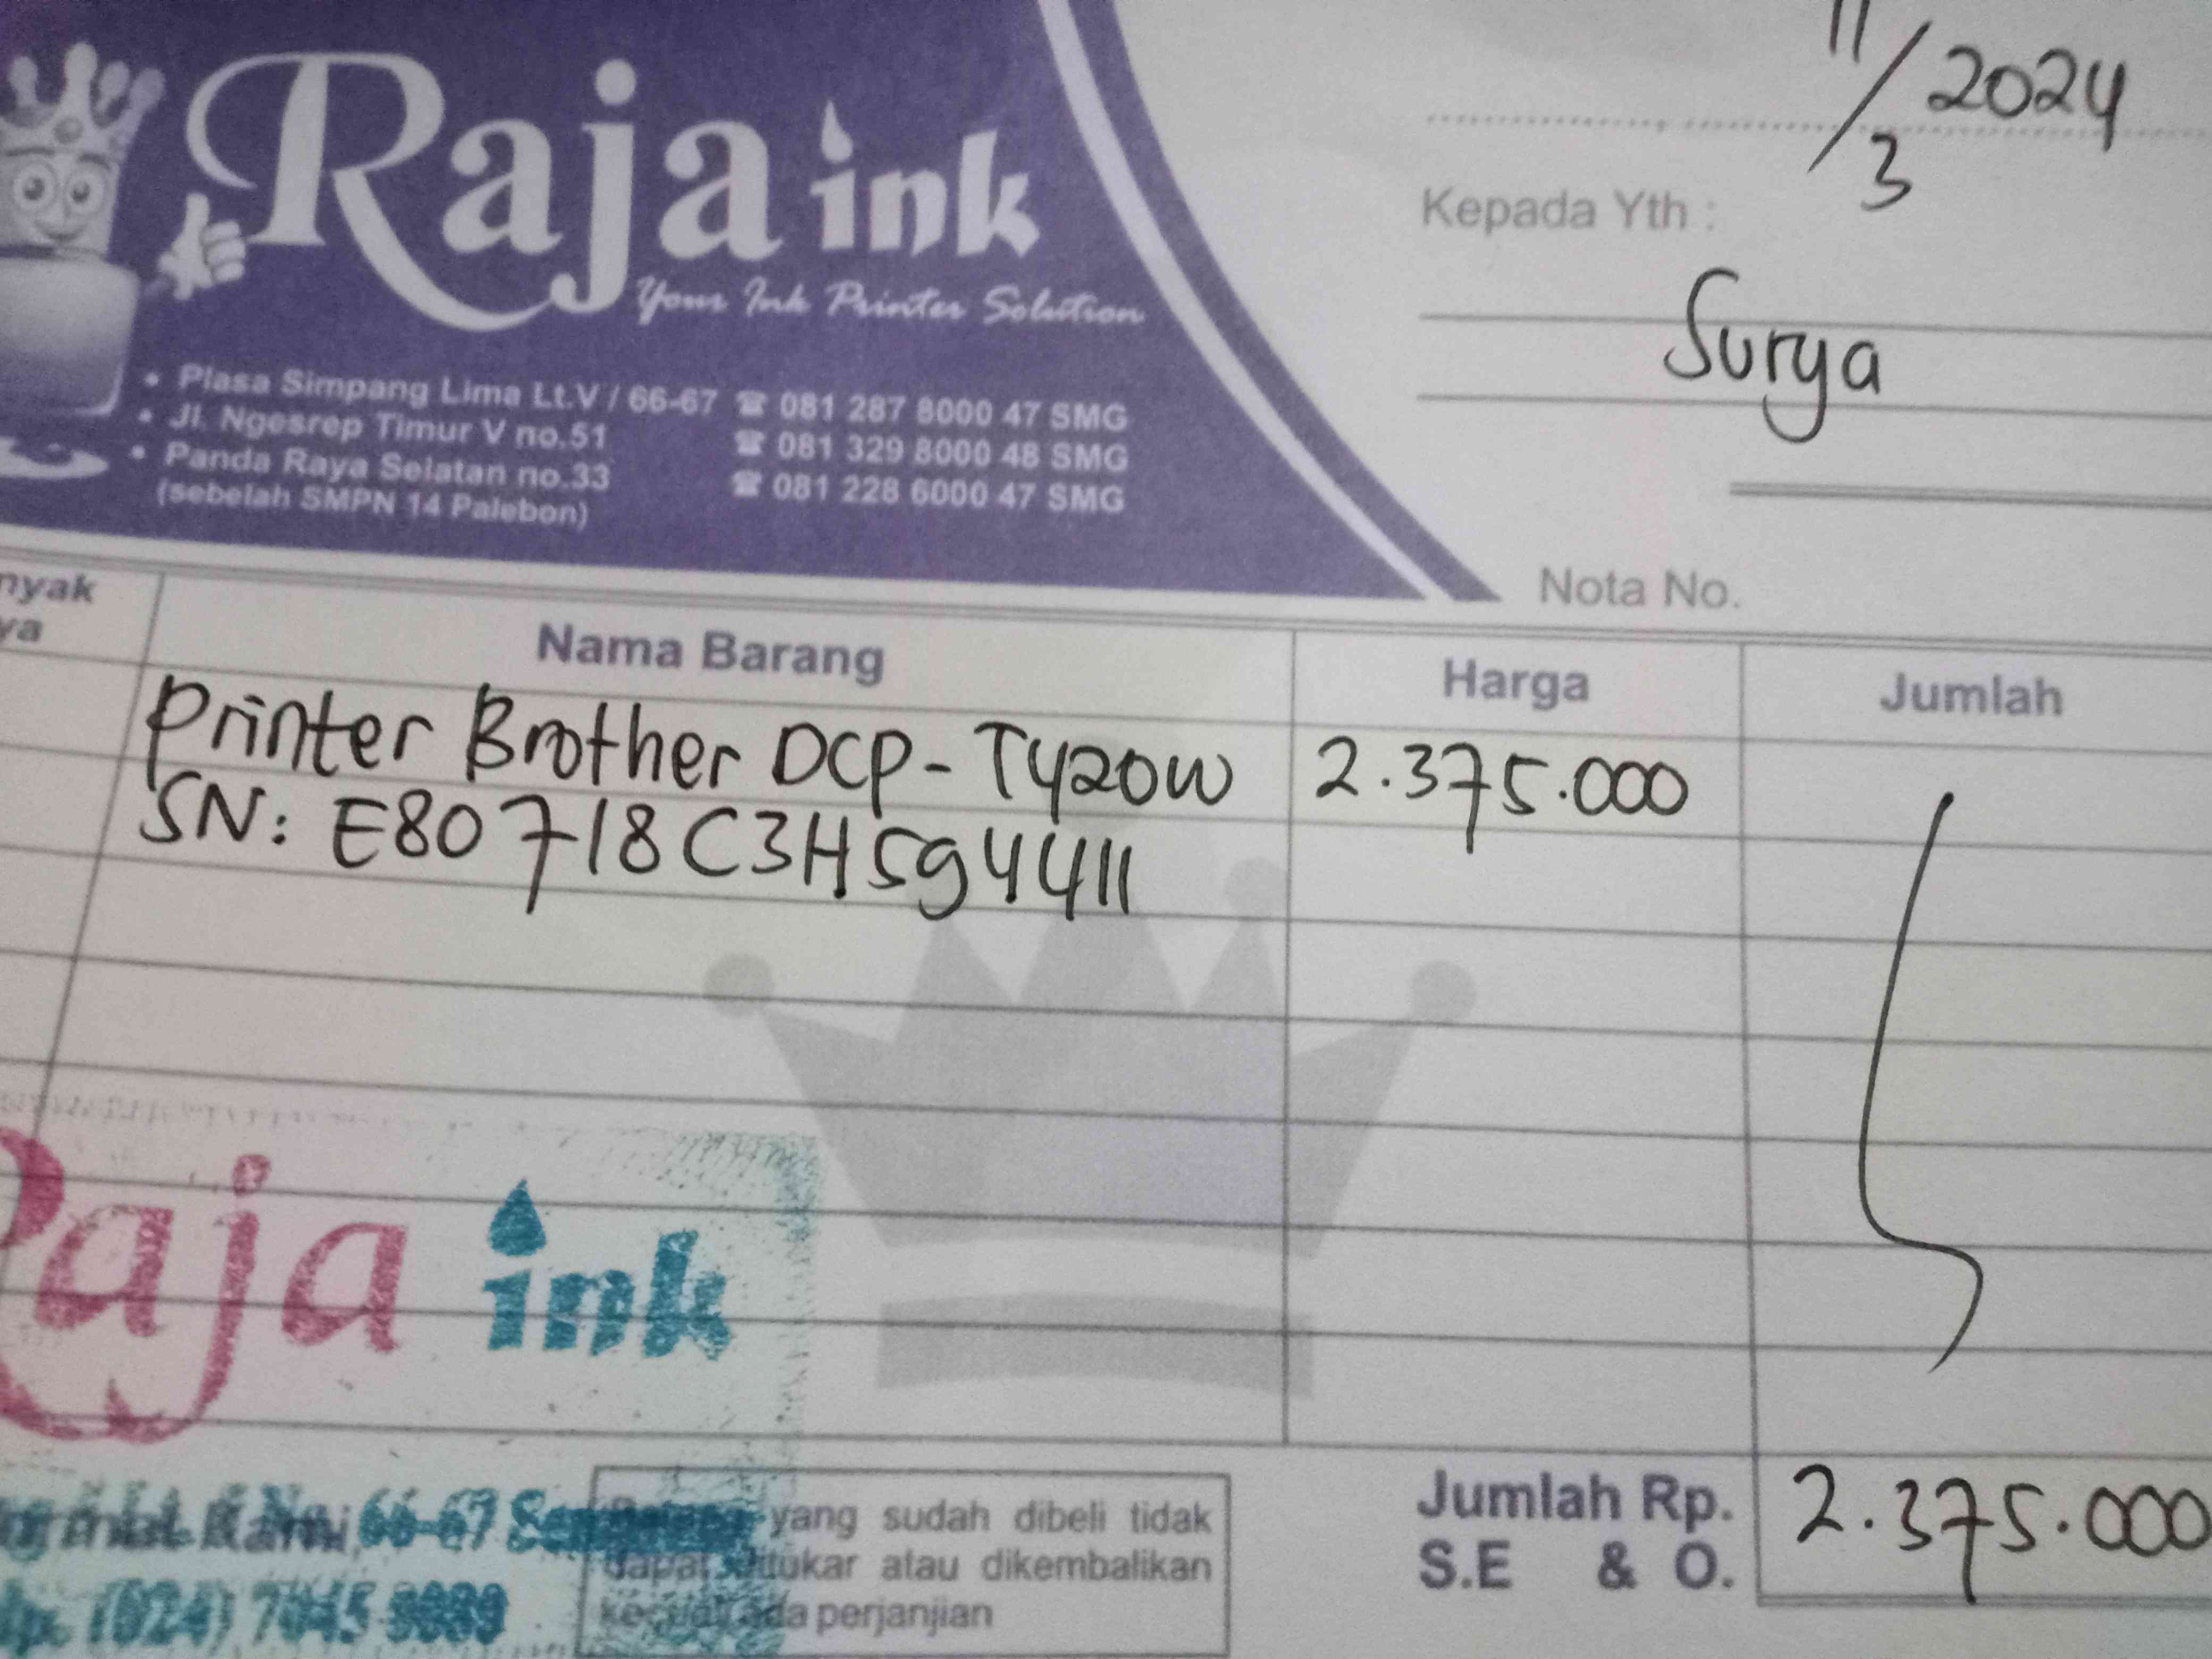 Raja ink
Your Ink Printer Solution
• Plasa Simpang Lima Lt.V / 66-67 ☎ 081 287 8000 47 SMG
• Jl. Ngesrep Timur V no.51 ☎ 081 329 8000 48 SMG
• Panda Raya Selatan no.33 ☎ 081 228 6000 47 SMG
(sebelah SMPN 14 Palebon)
11/3 2024
Kepada Yth :
Surya
Nota No.
nyak
ya
Nama Barang Harga Jumlah
Printer Brother DCP-T420W 2.375.000
SN: E80718C3H594411
Raja ink
66-67
(024) 7045
yang sudah dibeli tidak
dapat ditukar atau dikembalikan
kecuali ada perjanjian
Jumlah Rp. 2.375.000
S.E & O.